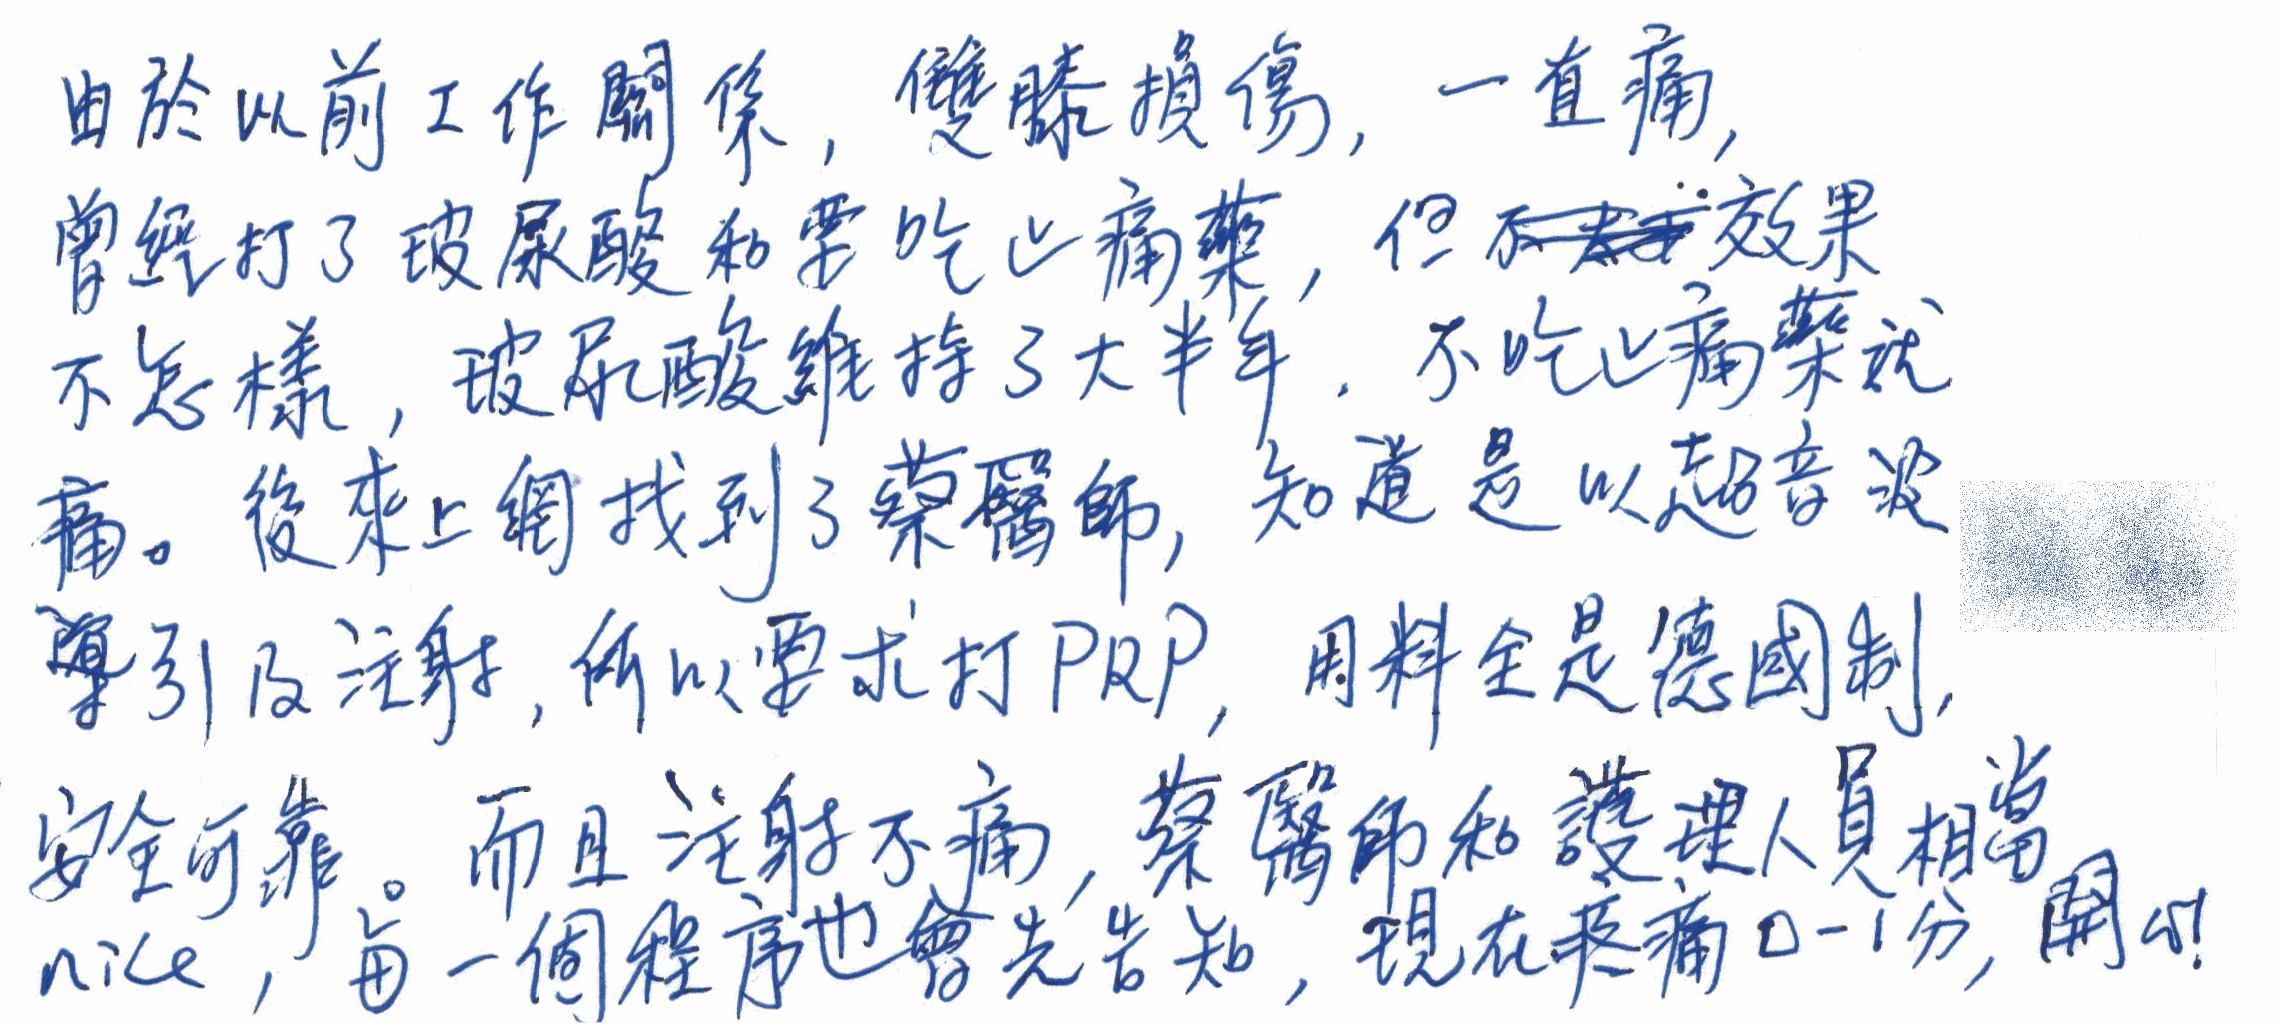 由於以前工作關係，雙膝損傷，一直痛，
曾經打了玻尿酸和要吃止痛藥，但效果
不怎樣，玻尿酸維持了大半年．不吃止痛藥就
痛。後來上網找到了蔡醫師，知道是以超音波
導引及注射，所以要求打PRP，用料全是德國制，
安全可靠。而且注射不痛，蔡醫師和護理人員相當
nice，每一個程序也會先告知，現在疼痛0-1分，開心!